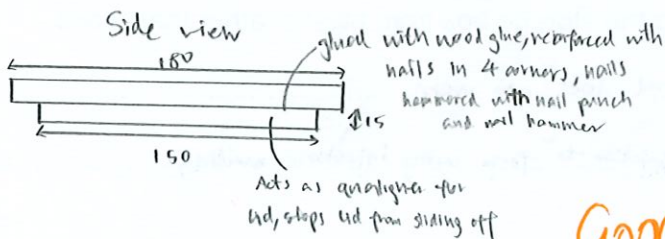 Side view
180
glued with wood glue, reinforced with
nails in 4 corners, nails
hammered with nail punch
and nail hammer
15
150
Acts as for
lid, stops lid from sliding off